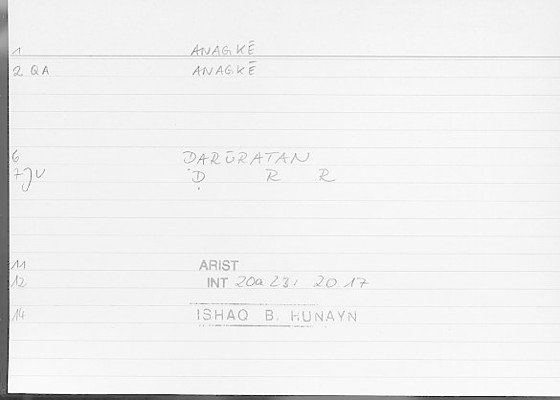 1 ANAGKĒ
2 QA ANAGKĒ
6 ḌARŪRATAN
7 JV Ḍ R R
11 ARIST
12 INT 20a23; 20.17
14 ISHAQ B. HUNAYN